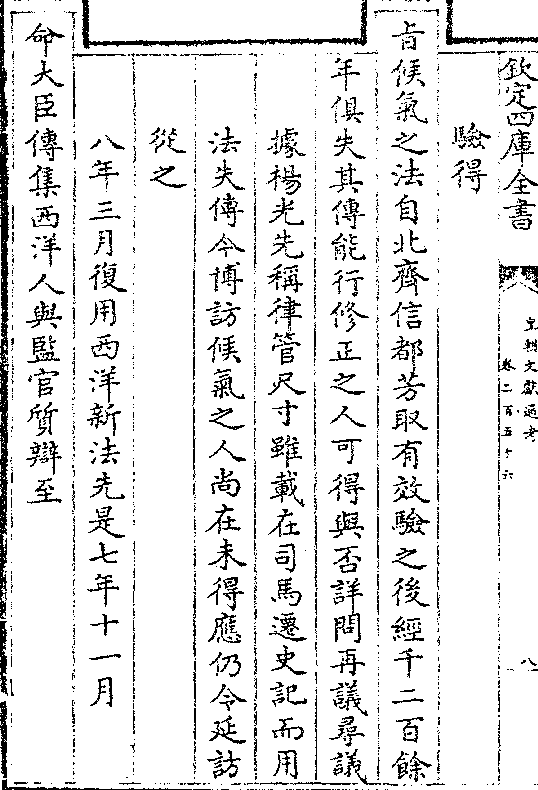 欽定四庫全書
皇朝文獻通考
卷二百五十六
八
驗得
旨候氣之法自北齊信都芳取有效驗之後經千二百餘
年俱失其傳能行修正之人可得與否詳問再議尋議
據楊光先稱律管尺寸雖載在司馬遷史記而用
法失傳今博訪候氣之人尚在未得應仍令延訪
從之
八年三月復用西洋新法先是七年十一月
命大臣傳集西洋人與監官質辯至